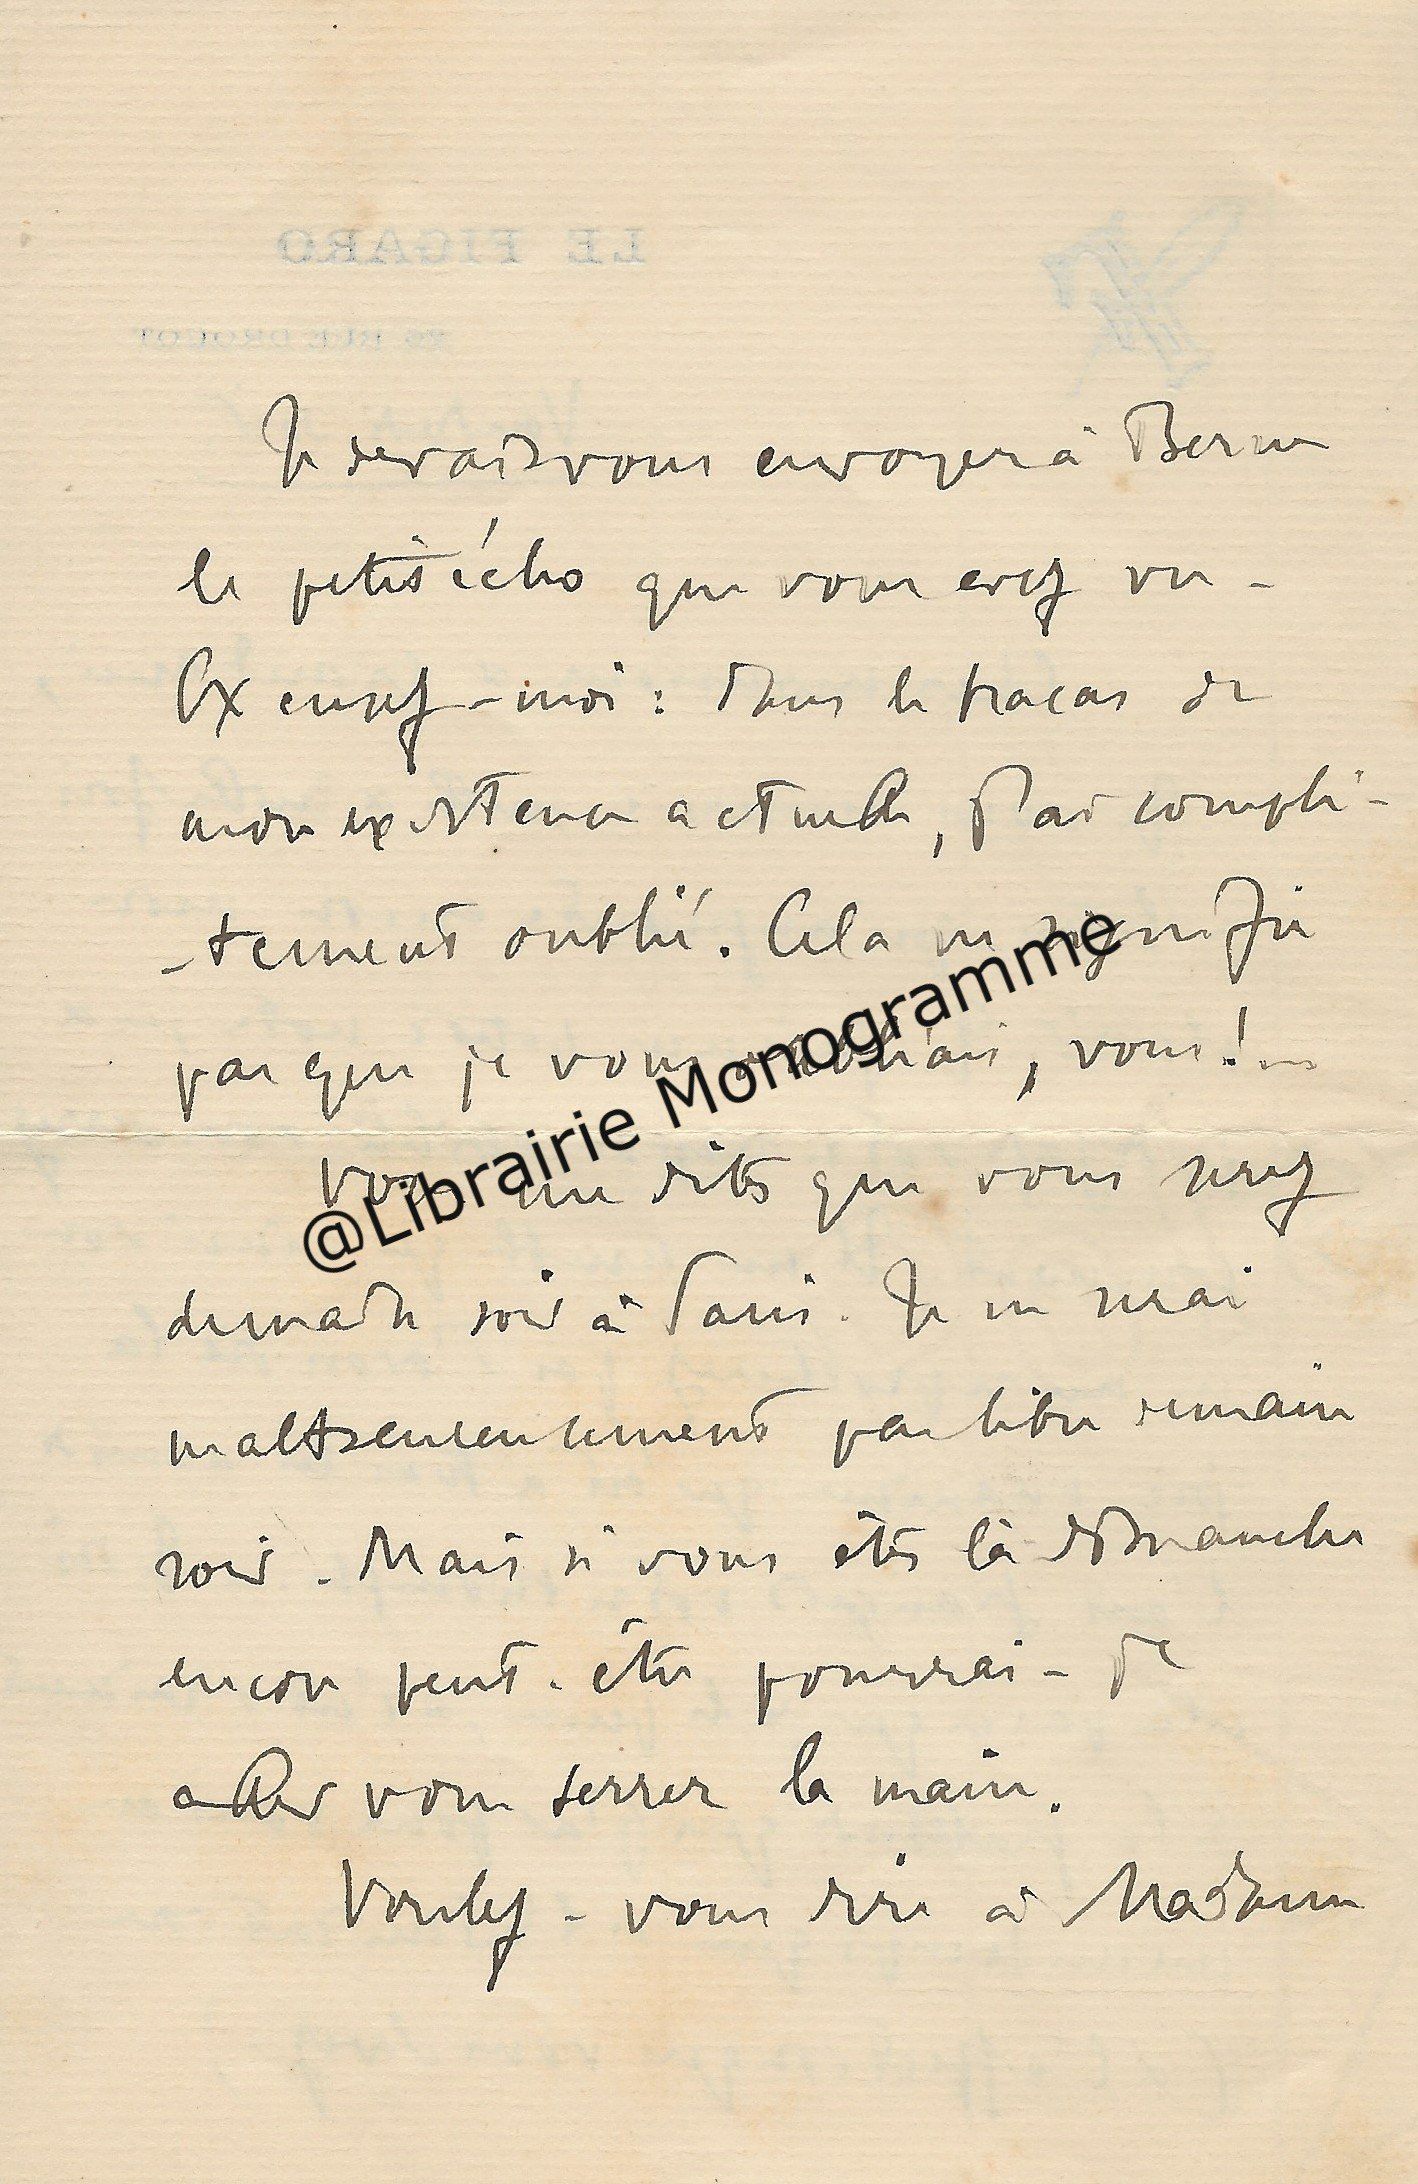 LE FIGARO
26 RUE DROUOT
Je devais vous envoyer à Berne
le petit écho que vous avez vu -
Excusez-moi : dans le tracas de
mon existence actuelle, j'ai complè-
-tement oublié. Cela ne signifie
pas que je vous oubliais, vous !...
Vous me dites que vous serez
demain soir à Paris. Je ne serai
malheureusement pas libre demain
soir. Mais si vous êtes là dimanche
encore peut-être pourrai-je
aller vous serrer la main.
Voulez-vous dire à Madame
@Librairie Monogramme